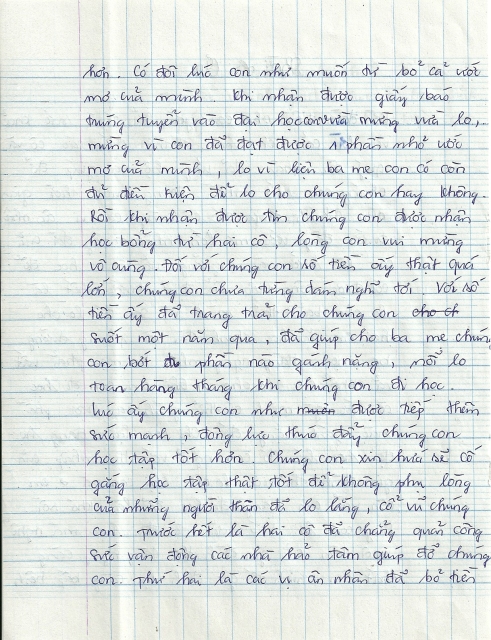 hơn. Có đôi lúc con như muốn từ bỏ cả ước
mơ của mình. Khi nhận được giấy báo
trúng tuyển vào đại học con vừa mừng vừa lo,
mừng vì con đã đạt được 1 phần nhỏ ước
mơ của mình, lo vì liệu ba mẹ con có còn
đủ điều kiện để lo cho chúng con hay không.
Rồi khi nhận được tin chúng con được nhận
học bổng từ hai cô, lòng con vui mừng
vô cùng. Đối với chúng con số tiền ấy thật quá
lớn, chúng con chưa từng dám nghĩ tới. Với số
tiền ấy đã trang trải cho chúng con
suốt một năm qua, đã giúp cho ba mẹ chúng
con bớt phần nào gánh nặng, mối lo
toan hàng tháng khi chúng con đi học.
Lúc ấy chúng con như được tiếp thêm
sức mạnh, động lực thúc đẩy chúng con
học tập tốt hơn. Chúng con xin hứa sẽ cố
gắng học tập thật tốt để không phụ lòng
của những người thân đã lo lắng, cổ vũ chúng
con. Trước hết là hai cô đã chẳng quản công
sức vận động các nhà hảo tâm giúp đỡ chúng
con. Thứ hai là các vị ân nhân đã bỏ tiền